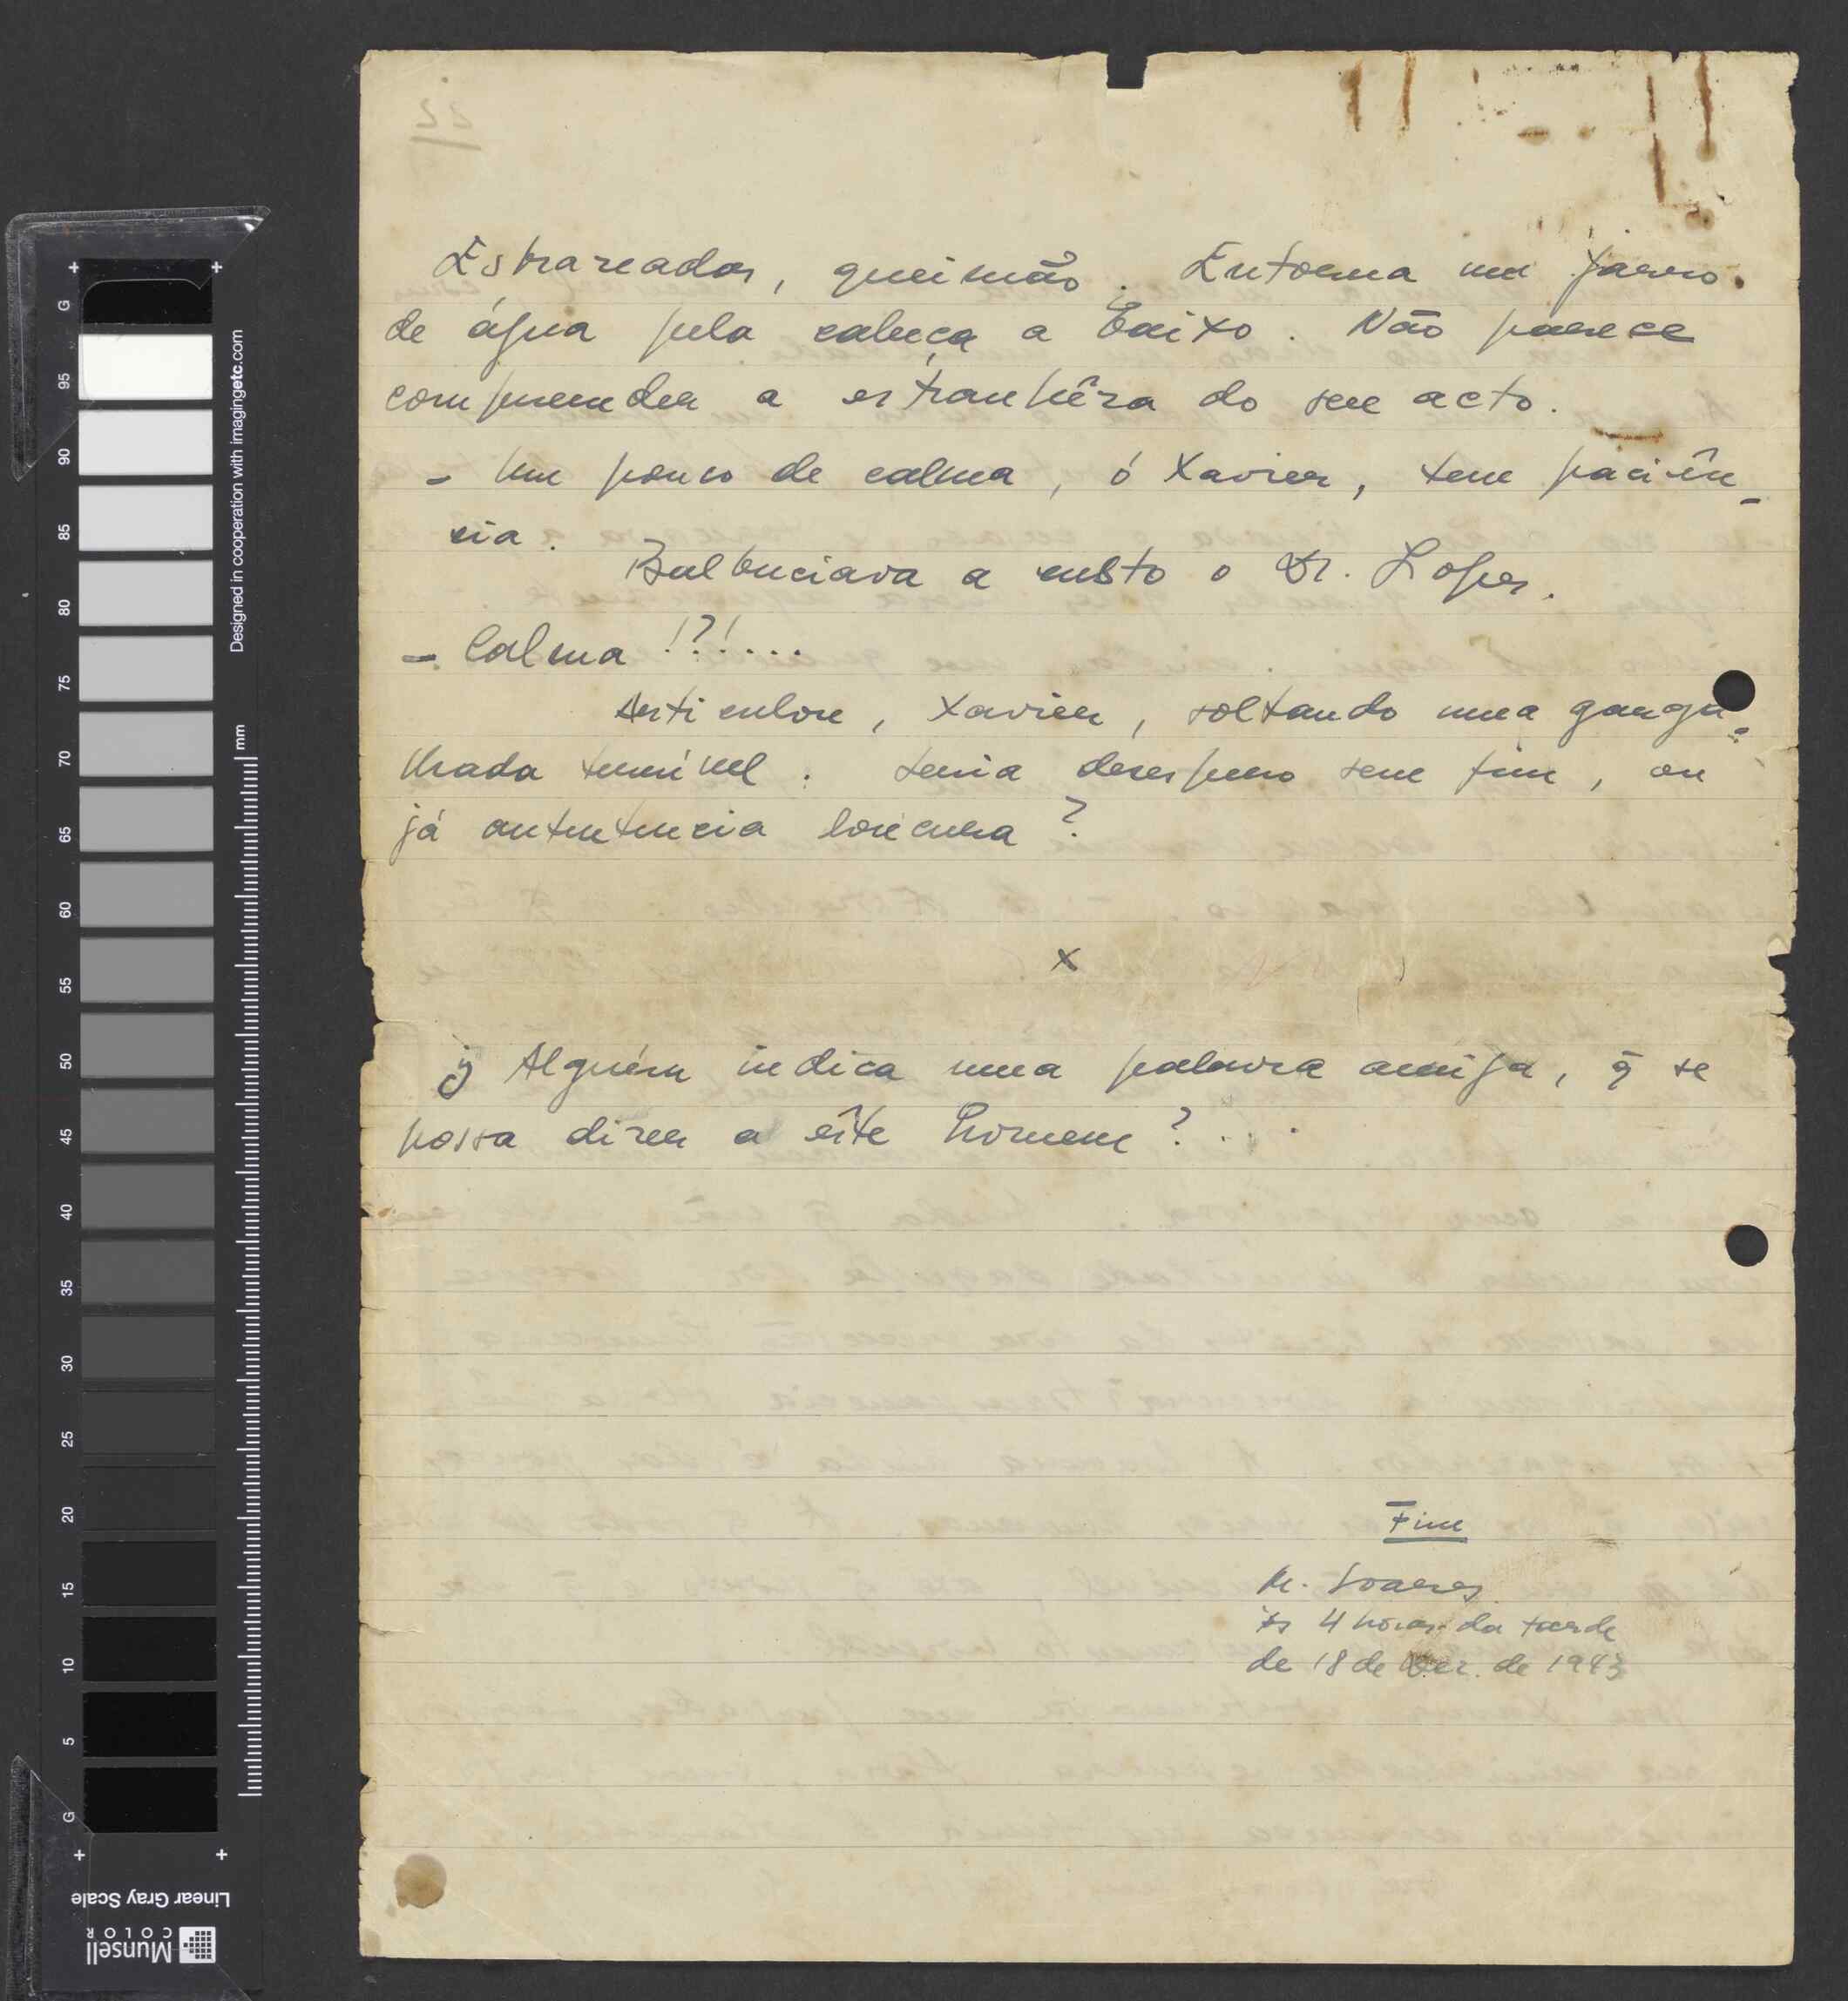 Esbrazeados, queimão. Entorna um jarro
de água pela cabeça a baixo. Não parece
compreender a estranhêza do seu acto.
- Um pouco de calma, ó Xavier, tem paciên-
cia.
Balbuciava a custo o Dr. Lopes.
- Calma!?!...
Articulou, Xavier, soltando uma garga-
lhada terrível. Seria desespero sem fim, ou
já autentencia loucura?
x
Alguém indica uma palavra amiga, q̃ se
possa dizer a êste homem?...
Fim
M. Soares
às 4 horas da tarde
de 18 de Dez. de 1943
+ +
G
95
90
85
80
75
70
65
60
55
50
45
40
35
30
25
20
15
10
5
G
+ +
mm
Designed in cooperation with imagingetc.com
Linear Gray Scale
Munsell
COLOR